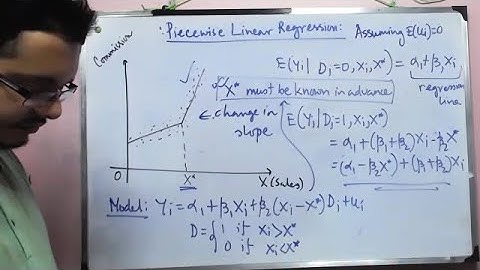 Piecewise Linear Regression: Assuming E(ui)=0
Commission
E(Yi| Di=0, Xi, X*) = α1+β1Xi
regression
line
X* must be known in advance
← change in
slope
E(Yi|Di=1, Xi, X*)
= α1+(β1+β2)Xi-β2X*
=(α1-β2X*)+(β1+β2)Xi
O
X*
X(Sales)
Model: Yi = α1+β1Xi+β2(Xi-X*)Di+ui
D={1 if Xi>X*
0 if Xi<X*